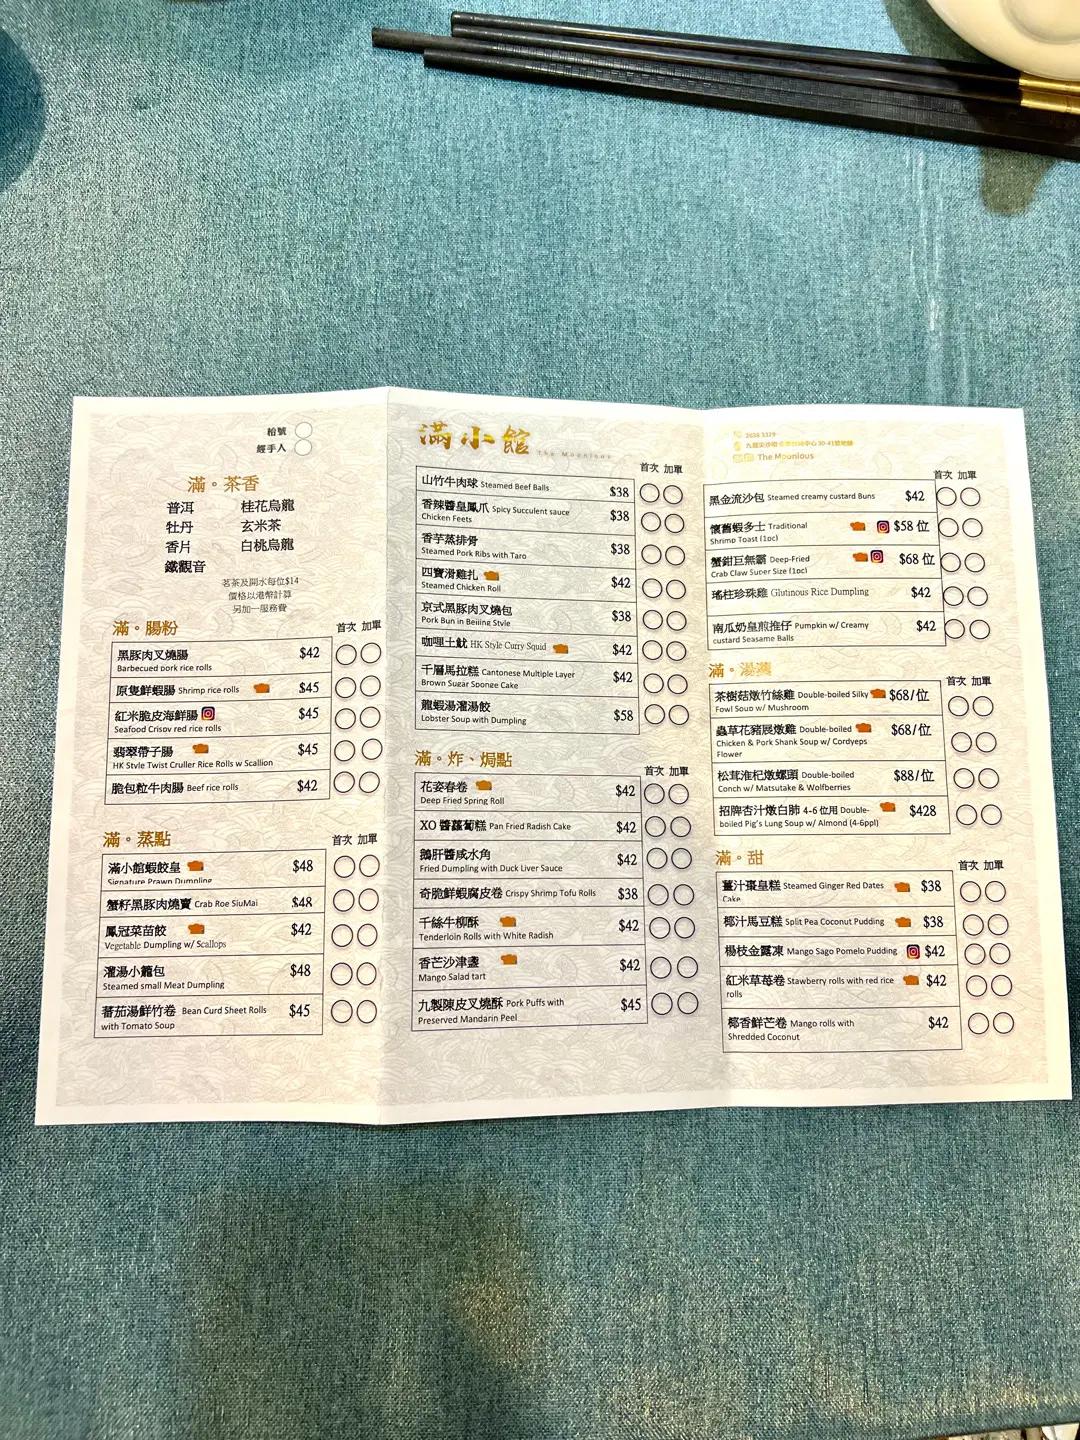 枱號
經手人
滿。茶香
普洱 桂花烏龍
牡丹 玄米茶
香片 白桃烏龍
鐵觀音
茗茶及開水每位$14
價格以港幣計算
另加一服務費
滿。腸粉 首次 加單
黑豚肉叉燒腸 $42
Barbecued pork rice rolls
原隻鮮蝦腸 Shrimp rice rolls $45
紅米脆皮海鮮腸 $45
Seafood Crispy red rice rolls
翡翠帶子腸 $45
HK Style Twist Cruller Rice Rolls w Scallion
脆包粒牛肉腸 Beef rice rolls $42
滿。蒸點 首次 加單
滿小館蝦餃皇 $48
Signature Prawn Dumpling
蟹籽黑豚肉燒賣 Crab Roe SiuMai $48
鳳冠菜苗餃 $42
Vegetable Dumpling w/ Scallops
灌湯小籠包 $48
Steamed small Meat Dumpling
蕃茄湯鮮竹卷 Bean Curd Sheet Rolls $45
with Tomato Soup
滿小館 The Mounious
首次 加單
山竹牛肉球 Steamed Beef Balls $38
香辣醬皇鳳爪 Spicy Succulent sauce $38
Chicken Feets
香芋蒸排骨 $38
Steamed Pork Ribs with Taro
四寶滑雞扎 $42
Steamed Chicken Roll
京式黑豚肉叉燒包 $38
Pork Bun in Beijing Style
咖哩土魷 HK Style Curry Squid $42
千層馬拉糕 Cantonese Multiple Layer $42
Brown Sugar Sponge Cake
龍蝦湯灌湯餃 $58
Lobster Soup with Dumpling
滿。炸、焗點 首次 加單
花姿春卷 $42
Deep Fried Spring Roll
XO 醬蘿蔔糕 Pan Fried Radish Cake $42
鵝肝醬咸水角 $42
Fried Dumpling with Duck Liver Sauce
奇脆鮮蝦腐皮卷 Crispy Shrimp Tofu Rolls $38
千絲牛柳酥 $42
Tenderloin Rolls with White Radish
香芒沙津盞 $42
Mango Salad tart
九製陳皮叉燒酥 Pork Puffs with $45
Preserved Mandarin Peel
2638 3329
九龍尖沙咀 中心 30-41號地舖
The Mounious
首次 加單
黑金流沙包 Steamed creamy custard Buns $42
懷舊蝦多士 Traditional $58 位
Shrimp Toast (1pc)
蟹鉗巨無霸 Deep-Fried $68 位
Crab Claw Super Size (1pc)
瑤柱珍珠雞 Glutinous Rice Dumpling $42
南瓜奶皇煎推仔 Pumpkin w/ Creamy $42
custard Seasame Balls
滿。湯羹 首次 加單
茶樹菇燉竹絲雞 Double-boiled Silky $68/位
Fowl Soup w/ Mushroom
蟲草花豬展燉雞 Double-boiled $68/位
Chicken & Pork Shank Soup w/ Cordyceps
Flower
松茸淮杞燉螺頭 Double-boiled $88/位
Conch w/ Matsutake & Wolfberries
招牌杏汁燉白肺 4-6 位用 Double- $428
boiled Pig's Lung Soup w/ Almond (4-6ppl)
滿。甜 首次 加單
薑汁棗皇糕 Steamed Ginger Red Dates $38
Cake
椰汁馬豆糕 Split Pea Coconut Pudding $38
楊枝金露凍 Mango Sago Pomelo Pudding $42
紅米草莓卷 Stawberry rolls with red rice $42
rolls
椰香鮮芒卷 Mango rolls with $42
Shredded Coconut